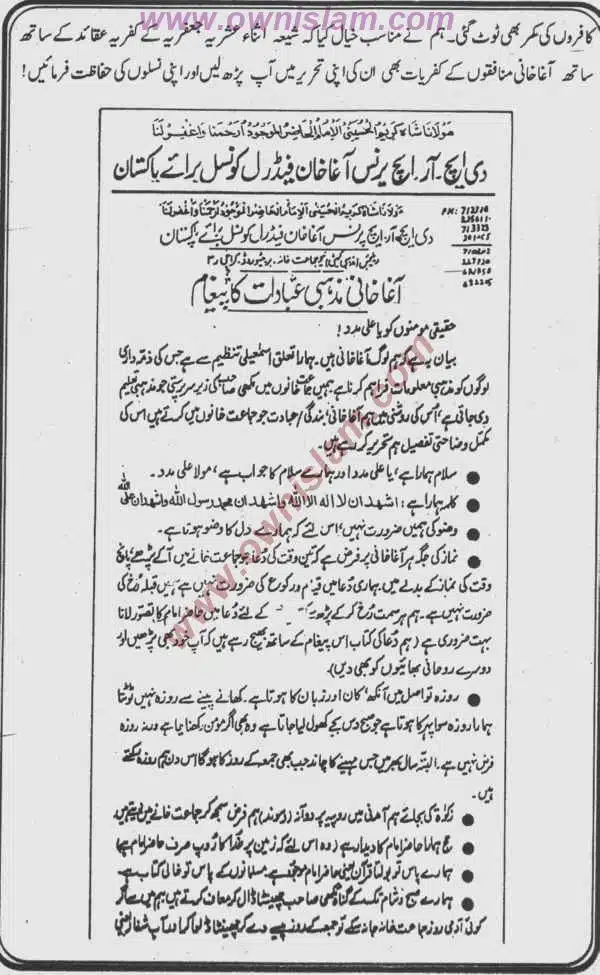 www.ownislam.com
کافروں کی کمر بھی ٹوٹ گئی۔ ہم نے مناسب خیال کیا کہ شیعہ اثناء عشریہ جعفریہ کے کفریہ عقائد کے ساتھ
ساتھ آغا خانی منافقوں کے کفریات بھی ان کی اپنی تحریر میں آپ پڑھ لیں اور اپنی نسلوں کی حفاظت فرمائیں!
مَولانَا شاہ کریم الحُسینی الاِمَامُ الحَاضِرُ المَوجُود اَرحَمنَا وَاغفِر لَنَا
دی ایچ۔ آر۔ ایچ پرنس آغا خان فیڈرل کونسل برائے پاکستان
مَولانَا شاہ کریم الحُسینی الاِمَامُ الحَاضِرُ المَوجُود اَرحَمنَا وَاغفِر لَنَا
دی ایچ۔ آر۔ ایچ پرنس آغا خان فیڈرل کونسل برائے پاکستان
آغا خانی مذہبی عبادات کا پیغام
حقیقی مومنوں کو یا علی مدد!
بیان یہ ہے کہ ہم لوگ آغا خانی ہیں۔ ہمارا تعلق اسمٰعیلی تنظیم سے ہے جس کی ذمّہ داری
لوگوں کو مذہبی معلومات فراہم کرنا ہے۔ ہمیں جماعت خانوں میں مکھی صاحب کی زیر سرپرستی جو مذہبی تعلیم
دی جاتی ہے، اُس کی روشنی میں ہم آغا خانی، بندگی/عبادت جو جماعت خانوں میں کرتے ہیں اس کی
مکمل وضاحتی تفصیل ہم تحریر کر رہے ہیں۔
● سلام ہمارا ہے، یا علی مدد اور ہمارے سلام کا جواب ہے، مولا علی مدد۔
● کلمہ ہمارا ہے: اشهد ان لا اله الا الله واشهد ان محمد رسول الله واشهد ان علی الله
● وضو کی ہمیں ضرورت نہیں، اس لئے کہ ہمارے دل کا وضو ہوتا ہے۔
● نماز کی جگہ ہر آغا خانی پر فرض ہے کہ تین وقت کی دُعا جو جماعت خانے میں آ کے پڑھے، پانچ
وقت کی نماز کے بدلے میں۔ ہماری دُعا میں قیام و رکوع کی ضرورت نہیں ہے ہمیں قبلہ رُخ کی
ضرورت نہیں ہے۔ ہم ہر سمت رُخ کر کے پڑھ کے لئے دُعا میں حاضر امام کا تصّور لانا
بہت ضروری ہے (ہم دُعا کی کتاب اس پیغام کے ساتھ بھیج رہے ہیں کہ آپ خود بھی پڑھیں اور
دوسرے روحانی بھائیوں کو بھی دیں)۔
● روزہ تو اصل میں آنکھ، کان اور زبان کا ہوتا ہے۔ کھانے پینے سے روزہ نہیں ٹوٹتا
ہمارا روزہ سوا پہر کا ہوتا ہے جو صبح دس بجے کھول لیا جاتا ہے وہ بھی اگر مؤمن رکھنا چاہے ورنہ روزہ
فرض نہیں ہے۔ البتّہ سال بھر میں جس مہینے کا چاند جب بھی جمعہ کے روز کا ہوگا اس دن ہم روزہ رکھتے
ہیں۔
● زکوٰۃ کی بجائے ہم آمدنی میں روپیہ پر دو آنہ (دسوند) ہم فرض سمجھ کر جماعت خانے میں دیتے ہیں
● حج ہمارا حاضر امام کا دیدار ہے (وہ اس لئے کہ زمین پر خدا کا رُوپ صرف حاضر امام ہے)
● ہمارے پاس تو بولتا قرآن یعنی حاضر امام موجود ہے، مسلمانوں کے پاس تو خالی کتاب ہے۔
● ہمارے صبح و شام تک کے گناہ مکھی صاحب چھینٹا ڈال کر معاف کرتے ہیں ہم میں سے اگر
کوئی آدمی روز جماعت خانہ جا نہ سکے تو جمعہ کے روز پیسے دے کر چھینٹا ڈلوا کر اور آپ شفاء یعنی
www.ownislam.com